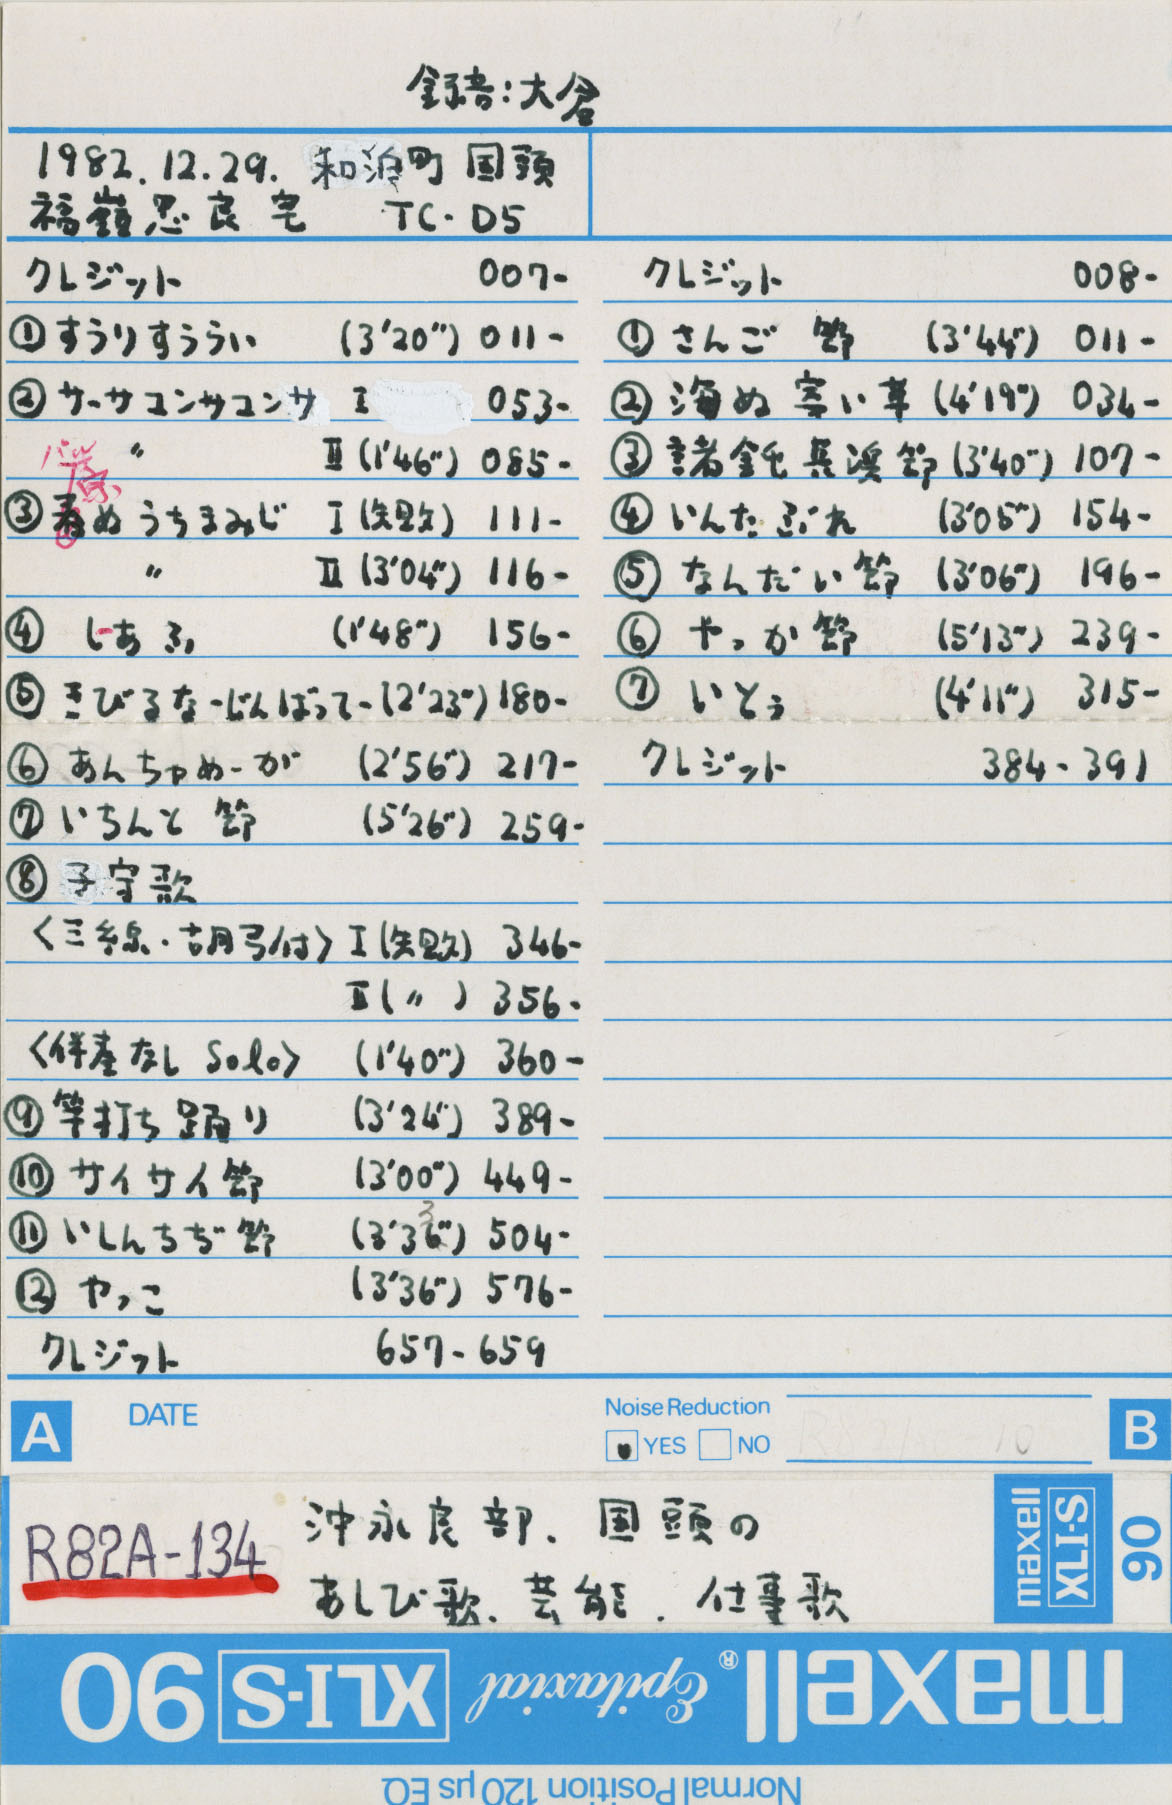 録音:大倉
1982.12.29. 和泊町 国頭
福嶺忍良宅 TC-D5
クレジット 007-
①すうりすううい (3'20") 011-
②サーサコンサコンサ I 053-
〃 II (1'46") 085-
③ ぬうちまみじ I (失敗) 111-
〃 II (3'04") 116-
④ しあふ (1'48") 156-
⑤きびるなーじんばって- (2'23") 180-
⑥ あんちゃめーが (2'56") 217-
⑦いちんと節 (5'26") 259-
⑧子守歌
〈三線・胡弓付〉 I (失敗) 346-
II (〃) 356-
〈伴奏なし Solo〉 (1'40") 360-
⑨竿打ち踊り (3'24") 389-
⑩サイサイ節 (3'00") 449-
⑪いしんちぢ節 504-
⑫ やっこ (3'36") 576-
クレジット 657-659
クレジット 008-
① さんご節 (3'44") 011-
②海ぬ寄い草 (4'19") 034-
③諸鈍長浜節 (3'40") 107-
④いんたぶれ (3'05") 154-
⑤なんだい節 (3'06") 196-
⑥ やっか節 (5'13") 239-
⑦ いとぅ (4'11") 315-
クレジット 384-391
A DATE
Noise Reduction
YES NO
B
R82A-134
沖永良部、国頭の
あしび歌、芸能、仕事歌
maxell
XLI-S
90
maxell® Epitaxial XLI-S 90
Normal Position 120μs EQ